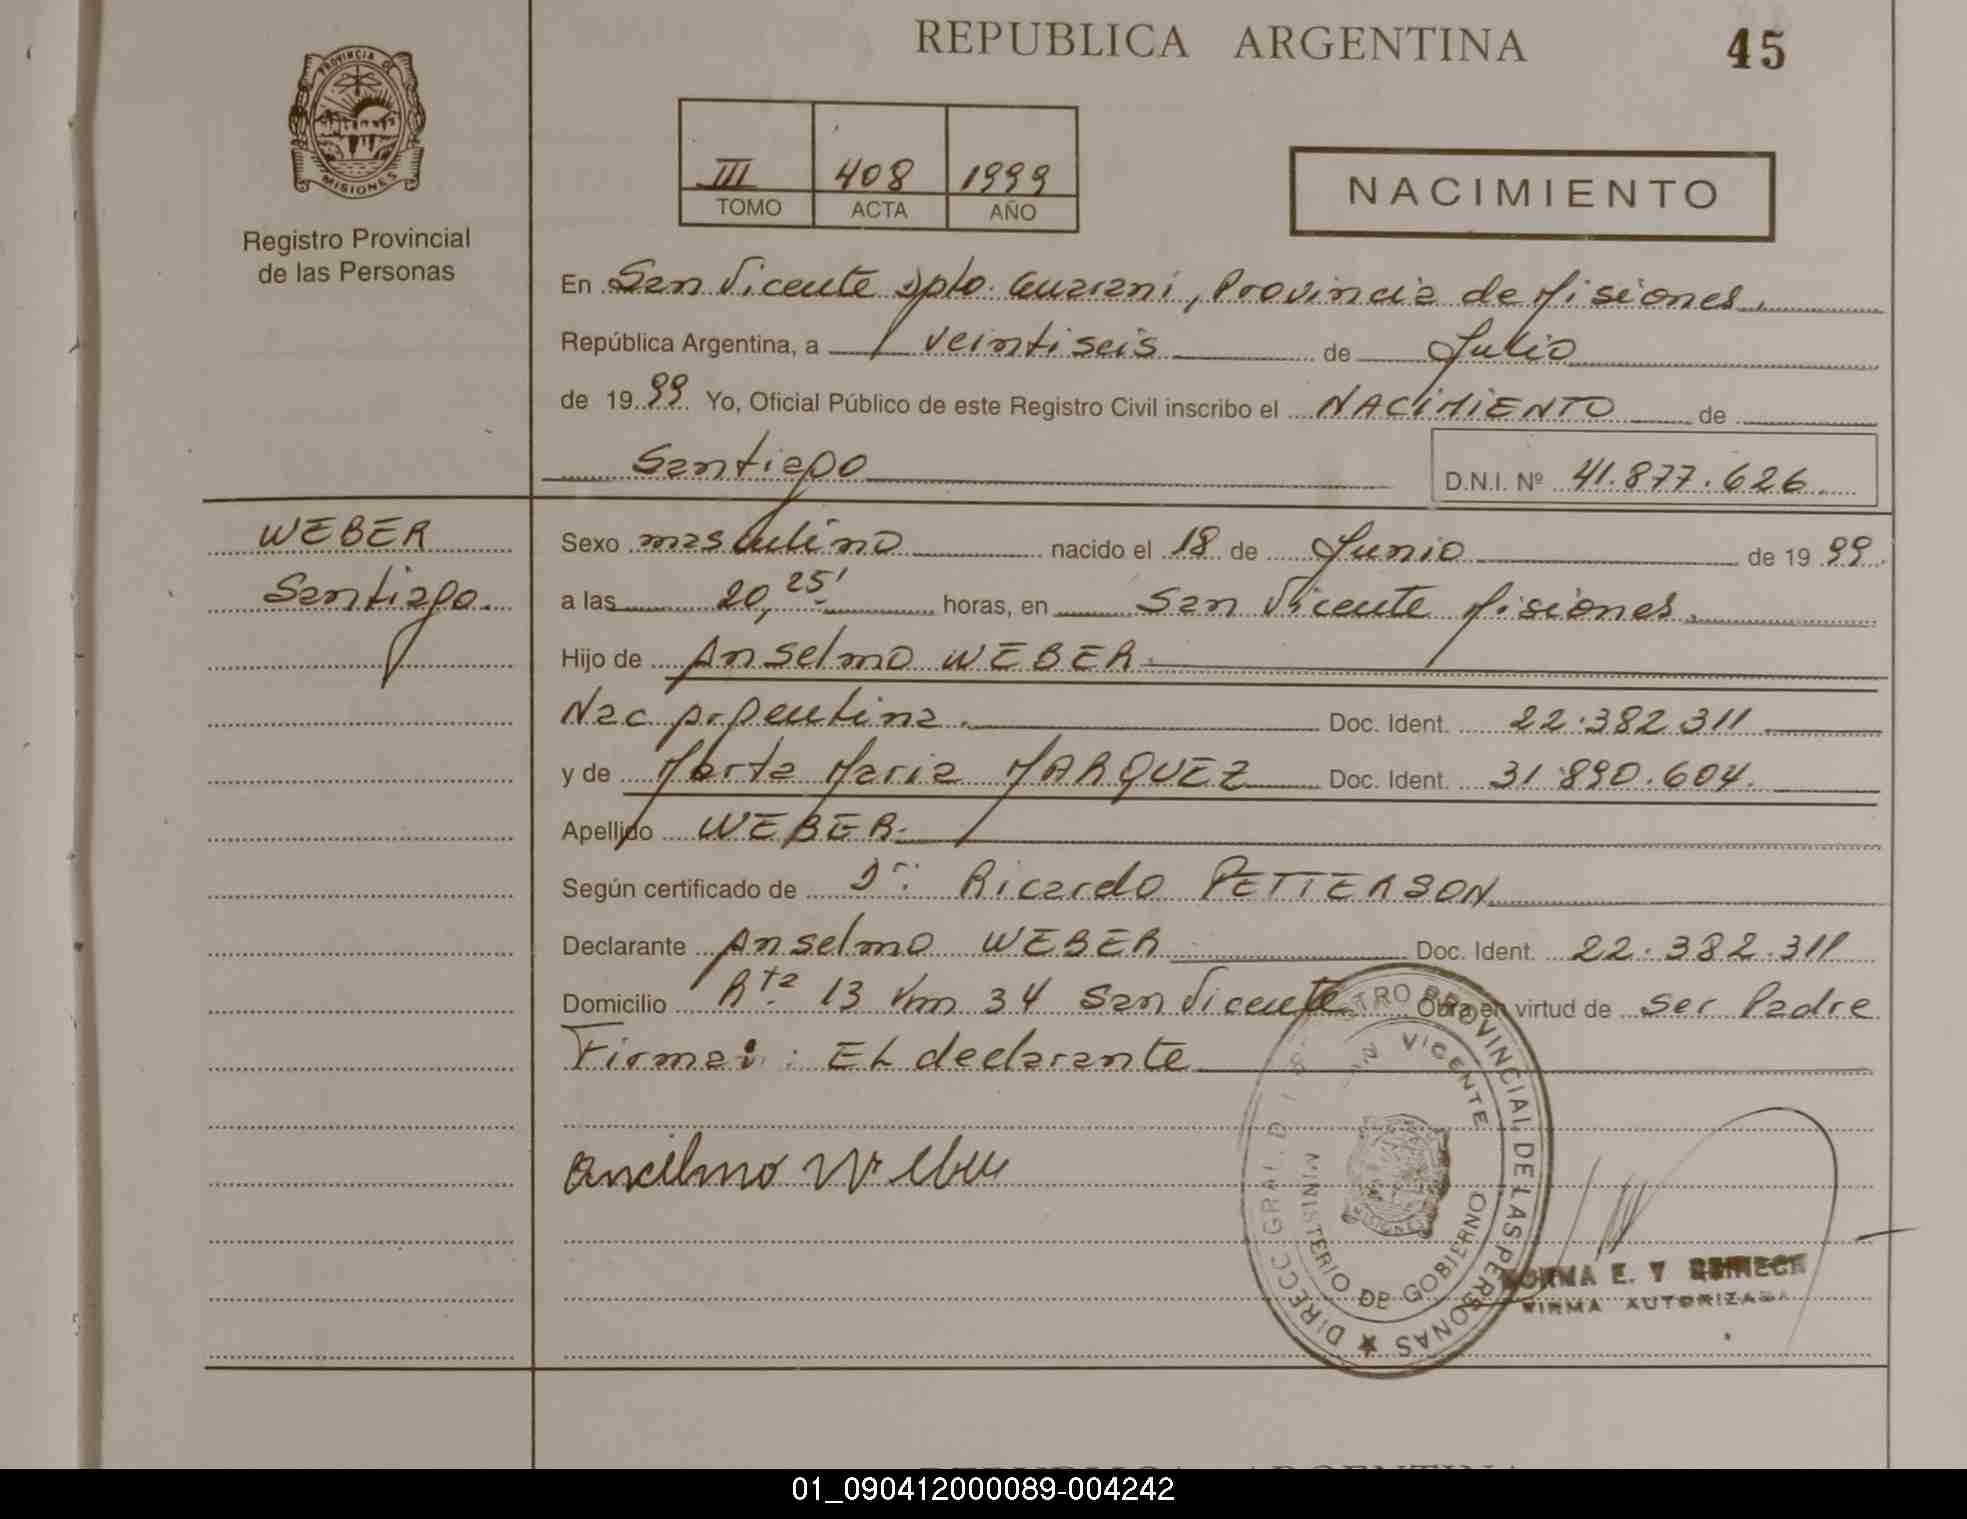 REPUBLICA ARGENTINA
45
PROVINCIA DE
MISIONES
Registro Provincial
de las Personas
III 408 1999
TOMO ACTA AÑO
NACIMIENTO
En San Vicente Dpto. Guarani, Provincia de Misiones.
República Argentina, a veintiseis de Julio
de 1999 Yo, Oficial Público de este Registro Civil inscribo el NACIMIENTO de
Santiago D.N.I. Nº 41.877.626
WEBER
Santiago.
Sexo masculino nacido el 18 de Junio de 1999.
a las 20,25' horas, en San Vicente Misiones.
Hijo de Anselmo WEBER
Nac Argentina. Doc. Ident. 22.382 311
y de Marta Maria MARQUEZ Doc. Ident. 31.890.604.
Apellido WEBER.
Según certificado de Dr. Ricardo PETTERSON
Declarante Anselmo WEBER Doc. Ident. 22.382.311
Domicilio Rta 13 Km 34 San Vicente Obra en virtud de ser Padre
Firma: : EL declarante
Ancilmo Weber
DIRECC GRAL. D PROVINCIAL DE LAS PERSONAS
VICENTE
MINISTERIO DE GOBIERNO
NORMA E. V
FIRMA AUTORIZADA
REPUBLICA ARGENTINA
01_090412000089-004242